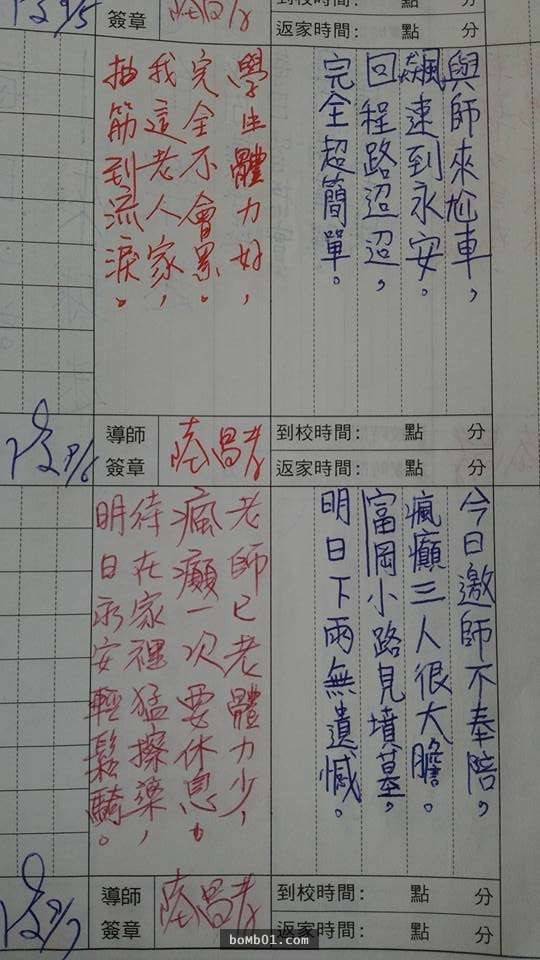 簽章
到校時間： 點 分
返家時間： 點 分
與師來尬車，
飆速到永安。
回程路迢迢，
完全超簡單。
學生體力好，
完全不會累。
我這老人家，
抽筋到流淚。
導師
簽章
到校時間： 點 分
返家時間： 點 分
今日邀師不奉陪，
瘋癲三人很大膽。
富岡小路見墳墓，
明日下雨無遺憾。
老師已老體力少，
瘋癲一次要休息。
待在家裡猛擦藥，
明日永安輕鬆騎。
導師
簽章
到校時間： 點 分
返家時間： 點 分
boMb01.com